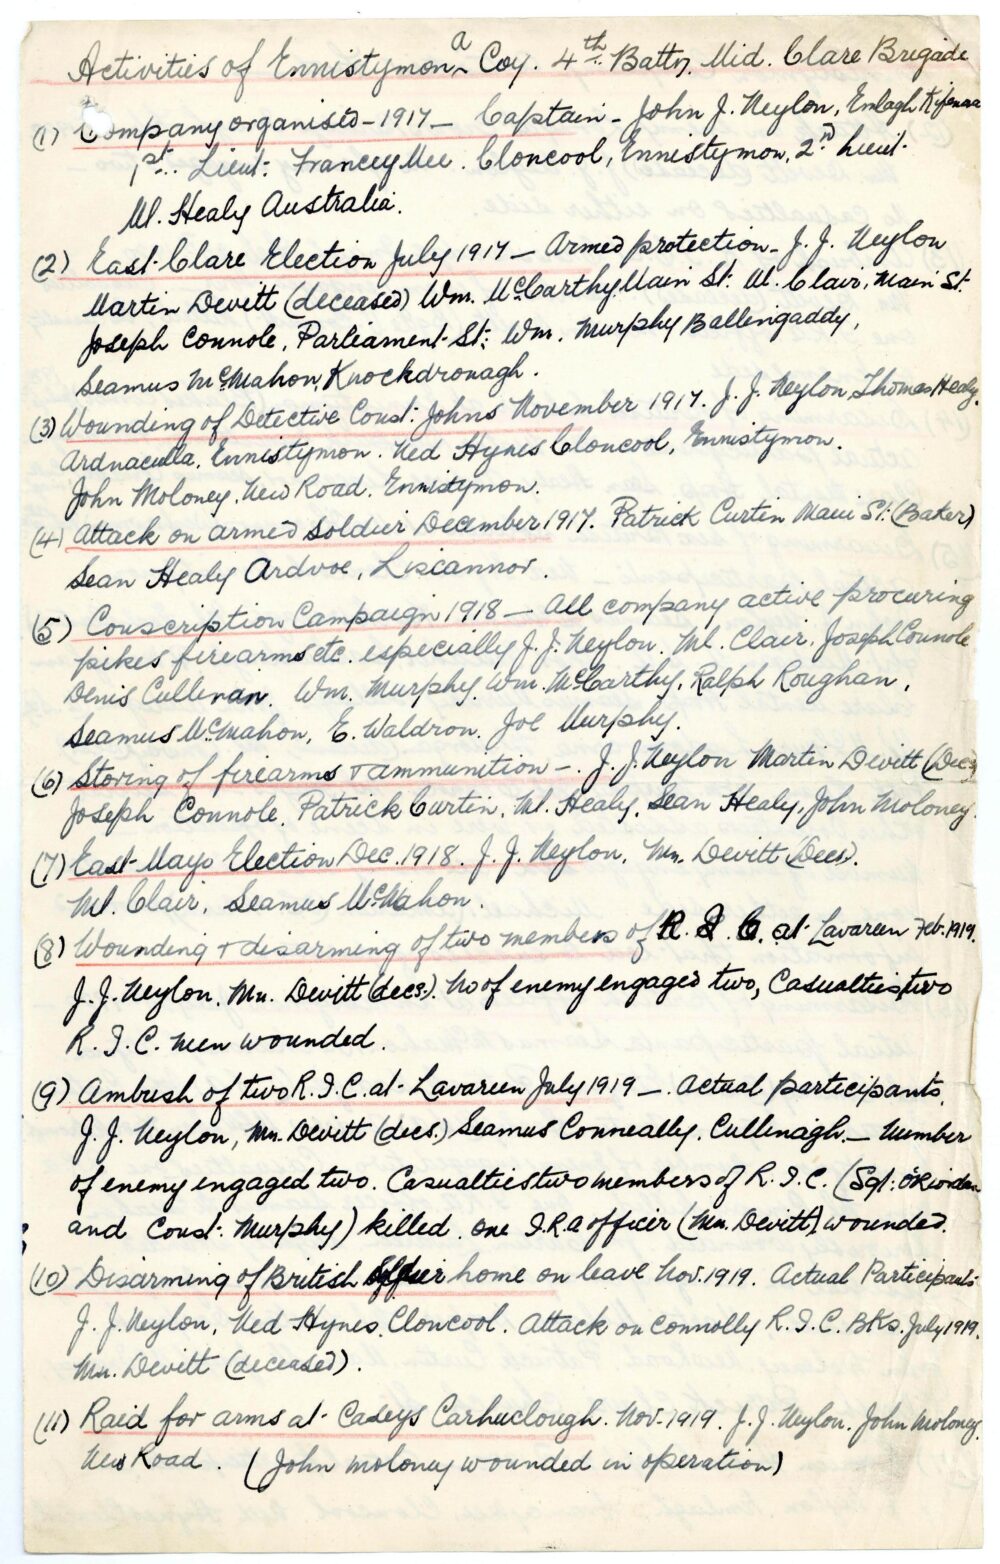 Activities of Ennistymon a Coy. 4th Battn. Mid. Clare Brigade
(1) Company organised - 1917 - Captain - John J. Neylon, Emlagh Kilfenora
1st. Lieut: Francey Mee. Cloncool, Ennistymon, 2nd Lieut.
Ml. Healy Australia.
(2) East Clare Election July 1917 - Armed protection - J. J. Neylon
Martin Devitt (deceased) Wm. McCarthy Main St: Ml. Clair, Main St.
Joseph Connole, Parliament St: Wm. Murphy Ballingaddy,
Seamus McMahon, Knockdronagh.
(3) Wounding of Detective Const: Johns November 1917. J. J. Neylon, Thomas Healy,
Ardnaculla, Ennistymon. Ned Hynes Cloncool, Ennistymon.
John Moloney, New Road. Ennistymon.
(4) Attack on armed soldier December 1917. Patrick Curtin Main St: (Baker)
Sean Healy Ardvoe, Liscannor.
(5) Conscription Campaign 1918 - All company active procuring
pikes firearms etc. especially J. J. Neylon. Ml. Clair, Joseph Connole
Denis Cullenan. Wm. Murphy. Wm. McCarthy, Ralph Roughan,
Seamus McMahon, E. Waldron. Joe Murphy.
(6) Storing of firearms & ammunition -. J. J. Neylon Martin Devitt (Dec)
Joseph Connole. Patrick Curtin, Ml. Healy, Sean Healy, John Moloney.
(7) East Mayo Election Dec. 1918. J. J. Neylon, Mn. Devitt (Decs).
Ml. Clair, Seamus McMahon.
(8) Wounding & disarming of two members of R. I. C. at Lavareen Feb. 1919.
J. J. Neylon, Mn. Devitt (decs.). No of enemy engaged two, Casualties two
R. I. C. men wounded.
(9) Ambush of two R. I. C. at Lavareen July 1919 -. Actual participants,
J. J. Neylon, Mn. Devitt (decs.) Seamus Conneally. Cullenagh. - Number
of enemy engaged two. Casualties two members of R. I. C. (Sgt: O'Riordan
and Const: Murphy) killed. One I.R.A officer (Mn. Devitt) wounded.
(10) Disarming of British Officer home on leave Nov. 1919. Actual Participants
J. J. Neylon, Ned Hynes, Cloncool. Attack on Connolly R. I. C. Bks. July 1919.
Mn. Devitt (deceased).
(11) Raid for arms at Caseys Carhuclough. Nov. 1919. J. J. Neylon. John Moloney.
New Road. (John Moloney wounded in operation)